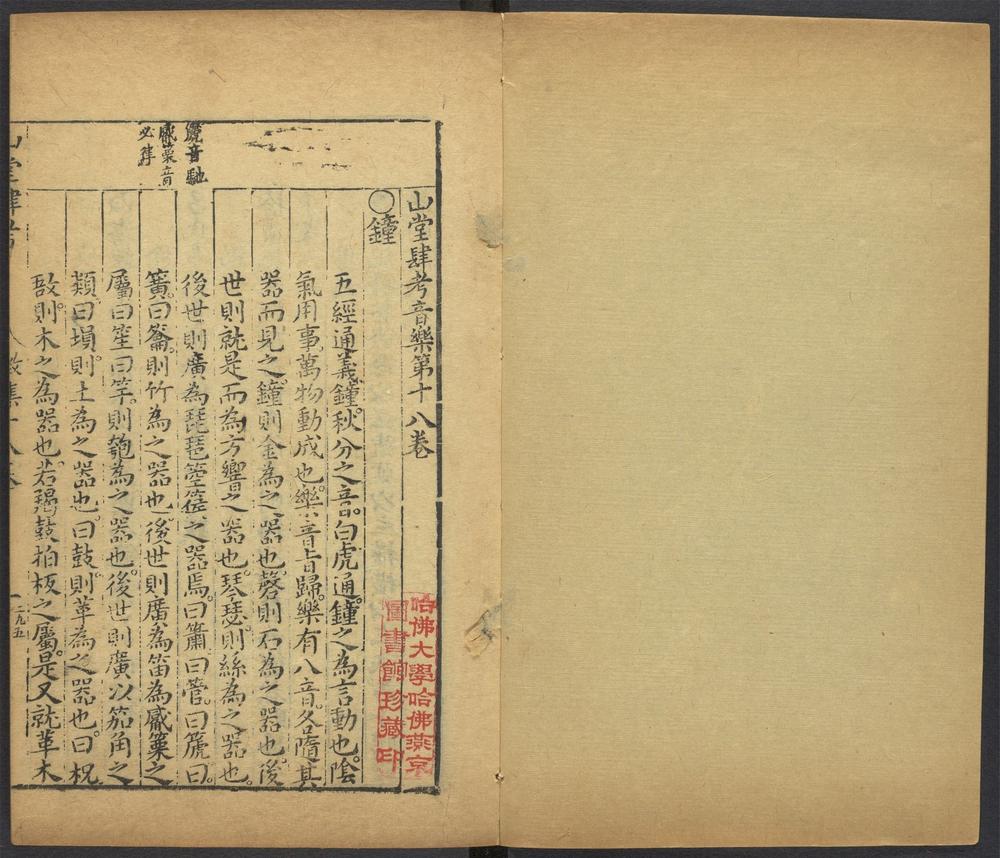 山堂肆考音樂第十八卷
○鐘
五經通義鐘秋分之音。白虎通。鐘之為言動也。陰
氣用事。萬物動成也。樂音皆歸。樂有八音。各隨其
器而見之。鐘則金為之器也。磬則石為之器也。後
世則就是而為方響之器也。琴瑟則絲為之器也。
後世則廣為琵琶箜篌之器焉。曰簫曰管。曰篪曰。
簧。曰籥。則竹為之器也。後世則廣為笛為觱篥之
屬曰笙曰竽。則匏為之器也。後世則廣以笳角之
類。曰塤則。土為之器也。曰鼓。則革為之器也。曰柷
敔則。木之為器也。若羯鼓拍板之屬。是又就革木
篪音馳
觱栗音
必
山堂肆考
集十八卷
二九五
哈佛大學哈佛燕京
圖書館珍藏印